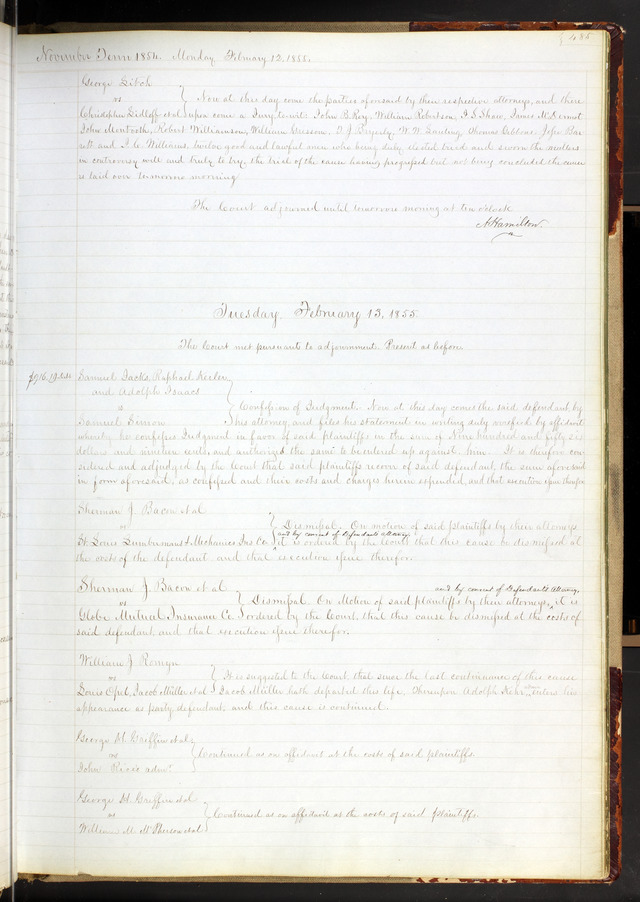 485
November Term 1854. Monday February 12, 1855.
George Litch
vs } Now at this day come the parties aforesaid by their respective attorneys, and there
Christopher Lidloff et al upon come a Jury to wit: John P. Roy, William Robertson, I. S. Shaw, James McDermot
John Mentroth, Robert Williamson, William Cresson, T. J. Bryerly, W. W. Lansing, Thomas Gibbons, John Bar
rett and I. C. Williams, twelve good and lawful men, who being duly elected tried and sworn the matters
in controversy well and truly to try, the trial of the cause having progressed but not being concluded the cause
is laid over tomorrow morning
The Court adjourned until tomorrow morning at ten o'clock
A Hamilton.
Tuesday, February 13, 1855.
The Court met pursuant to adjournment. Present as before.
Samuel Jacks, Raphael Keeler
and Adolph Isaacs
vs } Confession of Judgment. Now at this day comes the said defendant, by
Samuel Simon his attorney, and files his statement in writing duly verified by affidavit
whereby he confesses Judgment in favor of said plaintiffs in the sum of Nine hundred and fifty six
dollars and nineteen cents, and authorizes the same to be entered up against him. It is therefore con
sidered and adjudged by the Court that said plaintiffs recover of said defendant, the sum aforesaid
in form aforesaid, as confessed and their costs and charges herein expended, and that execution issue therefor.
Sherman J. Bacon et al
vs } Dismissal. On motion of said plaintiffs by their attorneys
and by consent of Defendants Attorney
St. Louis Lumbermans & Mechanics Ins Co. it is ordered by the Court that this cause be dismissed at
the costs of the defendant and that execution issue therefor.
Sherman J. Bacon et al and by consent of Defendants Attorney,
vs } Dismissal. On Motion of said plaintiffs by their attorneys, it is
Globe Mutual Insurance Co. ordered by the Court, that this cause be dismissed at the costs of
said defendant and that execution issue therefor.
William J. Romyn
vs } It is suggested to the Court, that since the last continuance of this cause
Louis Opel, Jacob Müller et al Jacob Müller hath departed this life. Thereupon Adolph Kehr enters his
appearance as party defendant, and this cause is continued.
George H. Griffin et al
vs } Continued on affidavit at the costs of said plaintiffs.
John Rice admr.
George H. Griffin et al
vs } Continued on affidavit at the costs of said plaintiffs.
William M. McPherson et al